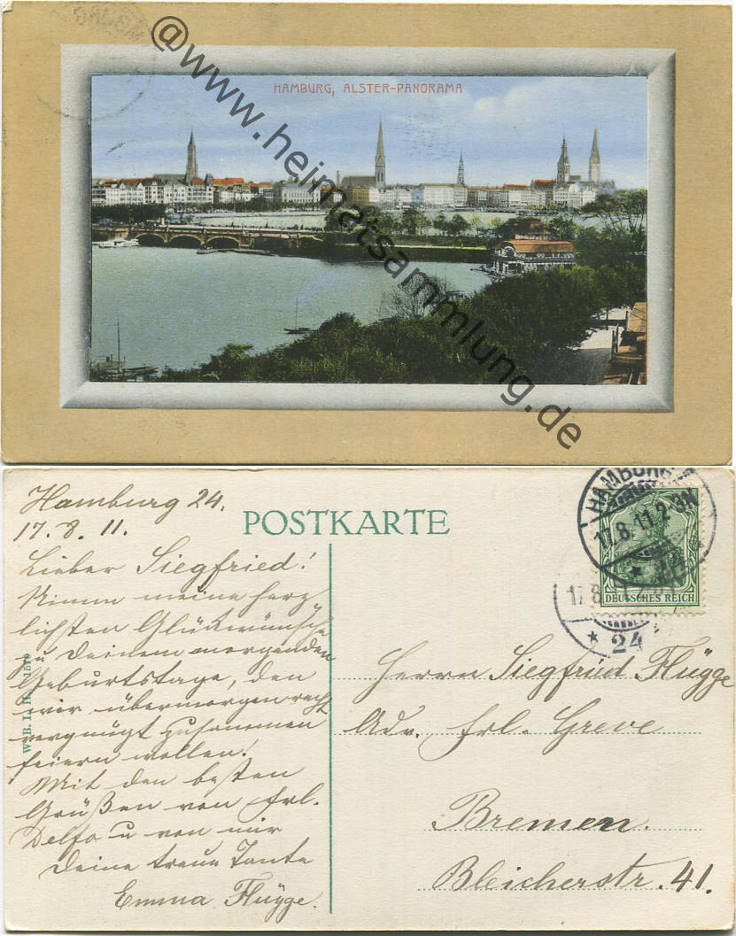 HAMBURG, ALSTER-PANORAMA
@www.heimatsammlung.de
Hamburg 24.
17. 8. 11.
POSTKARTE
Lieber Siegfried!
Nimm meine herz
lichsten Glückwünsche
z Deinem morgenden
Geburtstage, den
wir übermorgen recht
vergnügt zusammen
feiern wollen!
Mit den besten
Grüßen von Frl.
Delfo u von mir
Deine treue Tante
Emma Flügge.
HAMBURG
17.8.11.2-3N
* 24
DEUTSCHES REICH
Herrn Siegfried Flügge
Adr. Frl. Greve
Bremen.
Bleicherstr. 41.